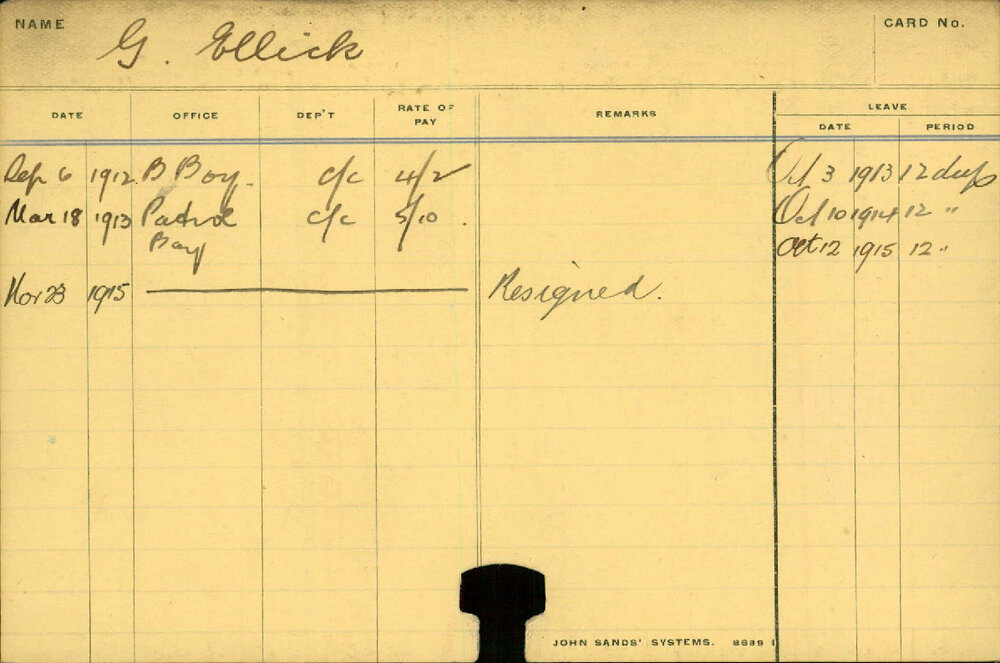 NAME G. Ellick CARD No.
DATE OFFICE DEP'T RATE OF PAY REMARKS LEAVE
DATE PERIOD
Sep 6 1912 B Boy. c/c 4/2 Oct 3 1913 12 days
Mar 18 1913 Patrol c/c 5/10. Oct 10 1914 12 "
Boy Oct 12 1915 12 "
Nov 23 1915 Resigned.
JOHN SANDS' SYSTEMS. 8689